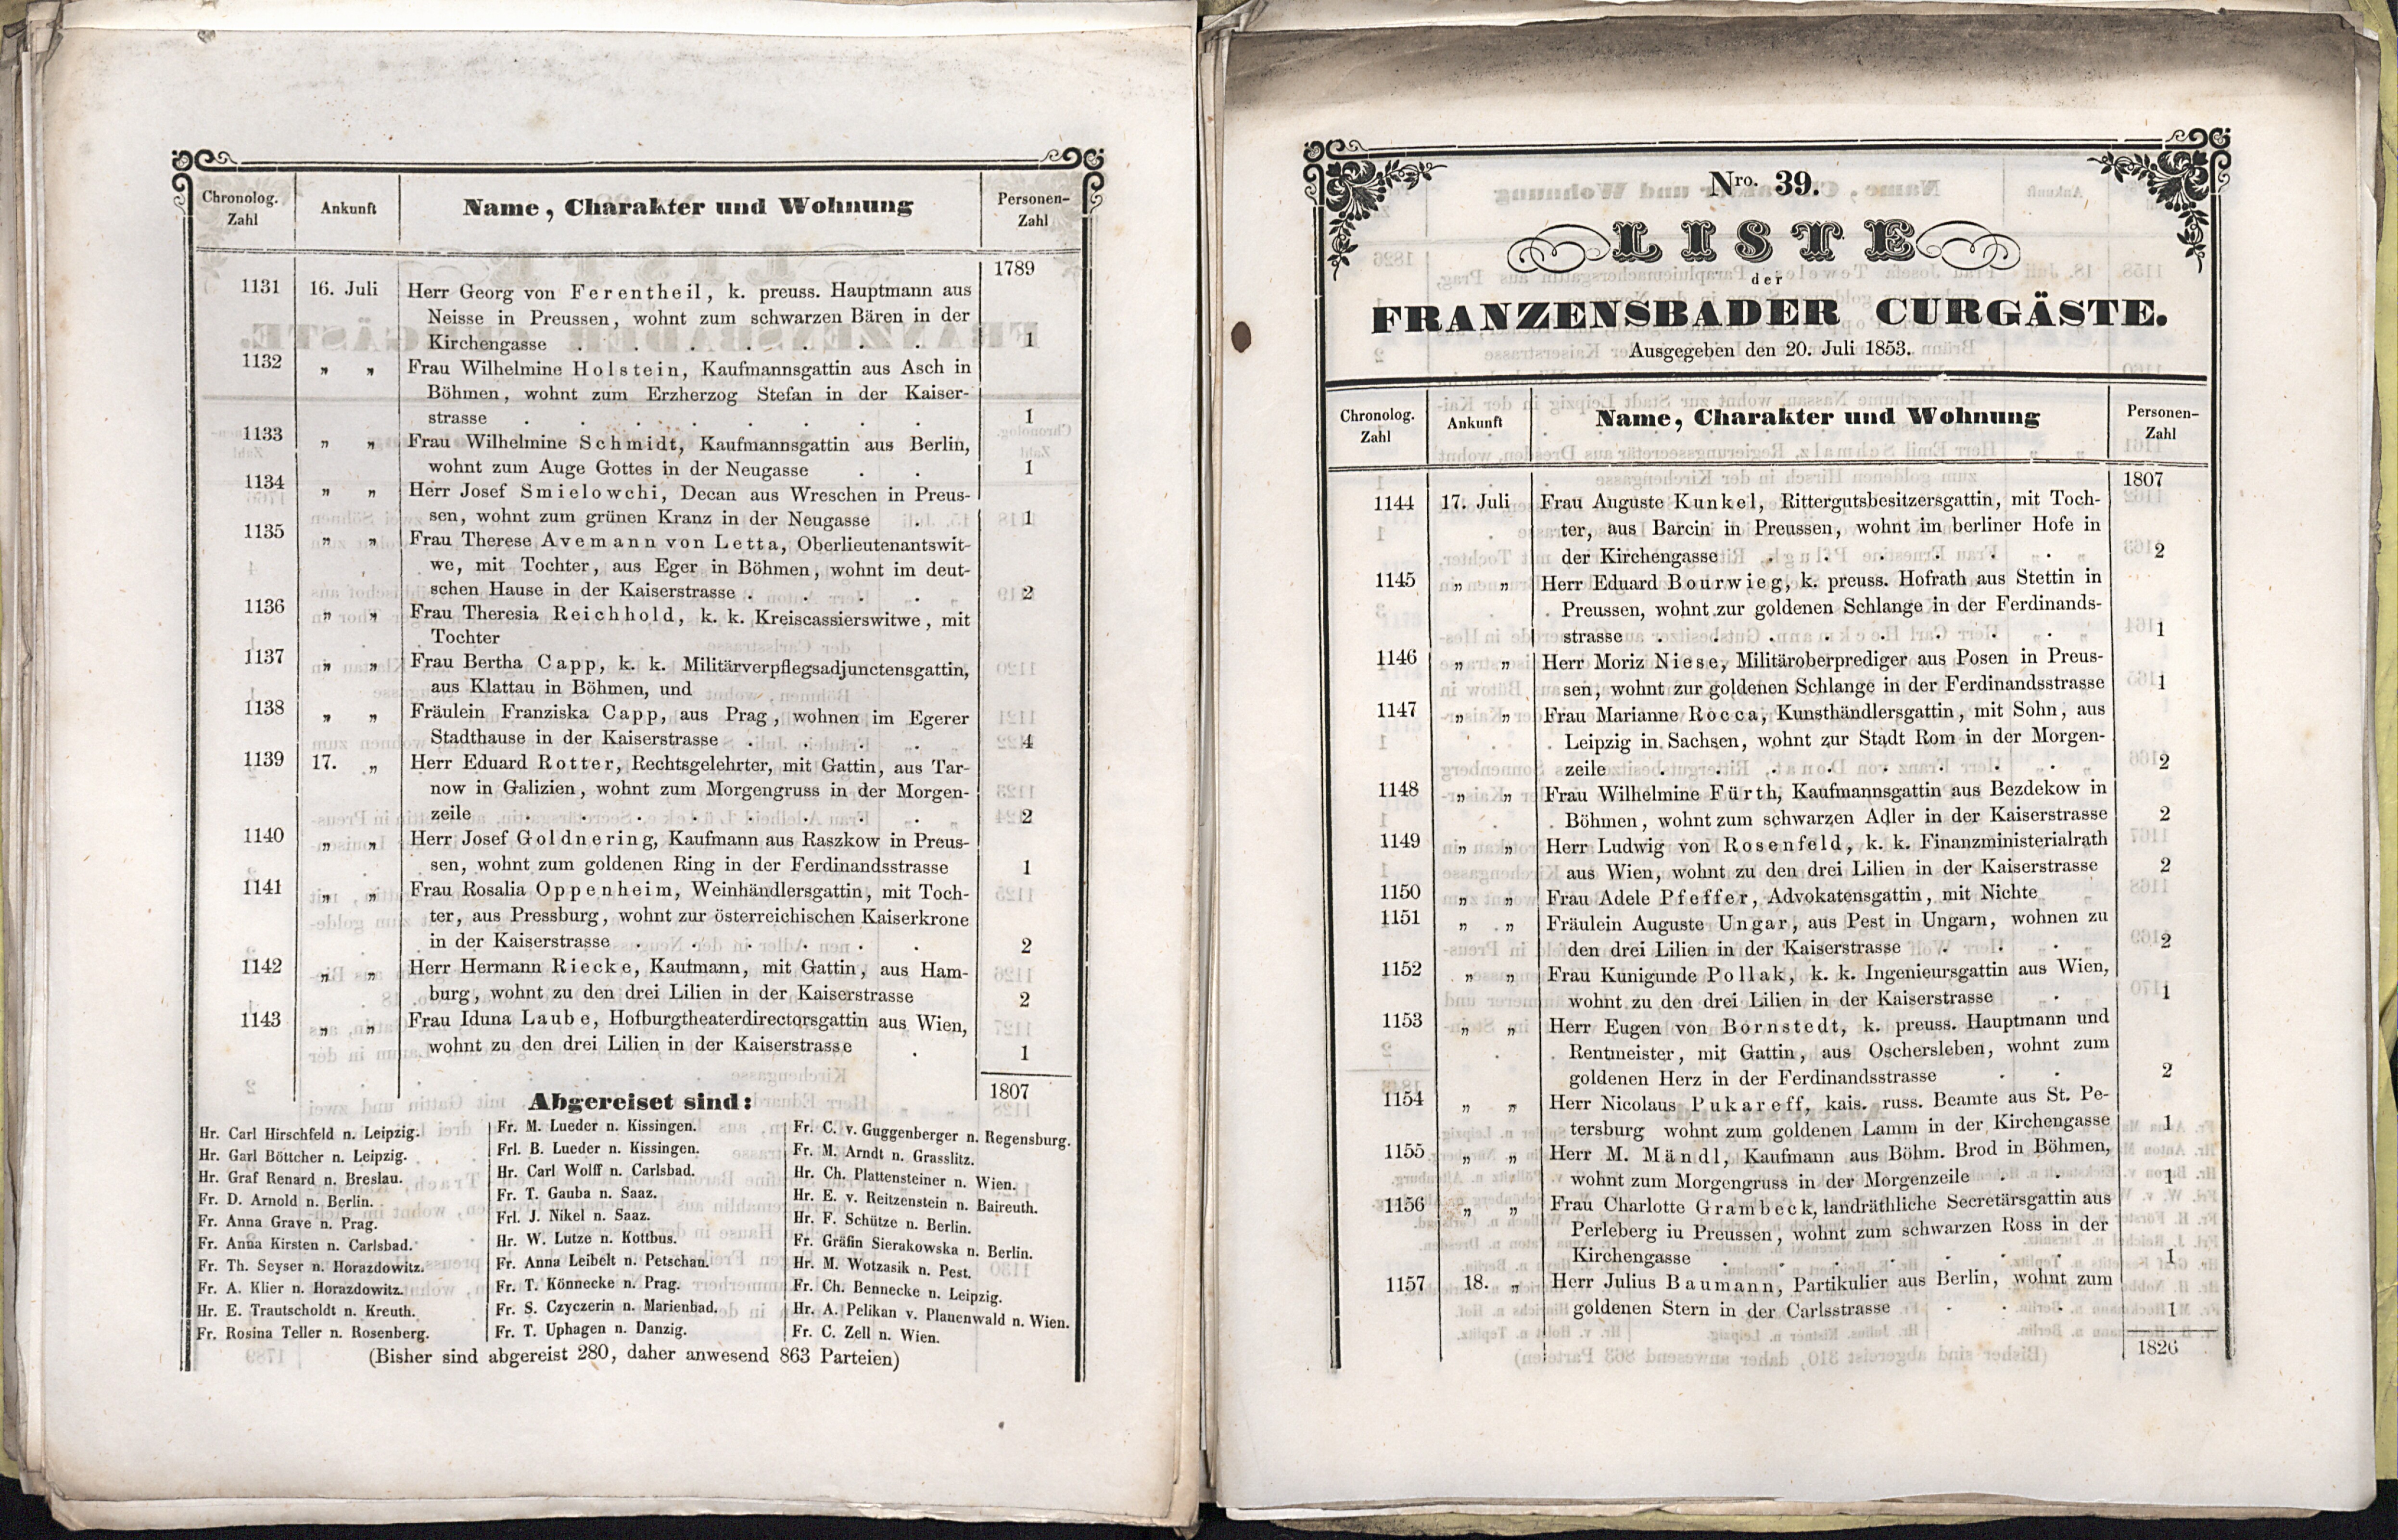 Chronolog. Zahl
Ankunft
Name, Charakter und Wohnung
Personen-Zahl
1789
1131 16. Juli Herr Georg von Ferentheil, k. preuss. Hauptmann aus
Neisse in Preussen, wohnt zum schwarzen Bären in der
Kirchengasse . . . . . . . 1
1132 „ „ Frau Wilhelmine Holstein, Kaufmannsgattin aus Asch in
Böhmen, wohnt zum Erzherzog Stefan in der Kaiser-
strasse . . . . . . . . 1
1133 „ „ Frau Wilhelmine Schmidt, Kaufmannsgattin aus Berlin,
wohnt zum Auge Gottes in der Neugasse . . 1
1134 „ „ Herr Josef Smielowchi, Decan aus Wreschen in Preus-
sen, wohnt zum grünen Kranz in der Neugasse . 1
1135 „ „ Frau Therese Avemann von Letta, Oberlieutenantswit-
we, mit Tochter, aus Eger in Böhmen, wohnt im deut-
schen Hause in der Kaiserstrasse . . . . 2
1136 „ „ Frau Theresia Reichhold, k. k. Kreiscassierswitwe, mit
Tochter
1137 „ „ Frau Bertha Capp, k. k. Militärverpflegsadjunctensgattin,
aus Klattau in Böhmen, und
1138 „ „ Fräulein Franziska Capp, aus Prag, wohnen im Egerer
Stadthause in der Kaiserstrasse . . . . 4
1139 17. „ Herr Eduard Rotter, Rechtsgelehrter, mit Gattin, aus Tar-
now in Galizien, wohnt zum Morgengruss in der Morgen-
zeile . . . . . . . . 2
1140 „ „ Herr Josef Goldnering, Kaufmann aus Raszkow in Preus-
sen, wohnt zum goldenen Ring in der Ferdinandsstrasse 1
1141 „ „ Frau Rosalia Oppenheim, Weinhändlersgattin, mit Toch-
ter, aus Pressburg, wohnt zur österreichischen Kaiserkrone
in der Kaiserstrasse . . . . . . 2
1142 „ „ Herr Hermann Riecke, Kaufmann, mit Gattin, aus Ham-
burg, wohnt zu den drei Lilien in der Kaiserstrasse 2
1143 „ „ Frau Iduna Laube, Hofburgtheaterdirectorsgattin aus Wien,
wohnt zu den drei Lilien in der Kaiserstrasse . 1
1807
Abgereiset sind:
Hr. Carl Hirschfeld n. Leipzig.
Hr. Garl Böttcher n. Leipzig.
Hr. Graf Renard n. Breslau.
Fr. D. Arnold n. Berlin.
Fr. Anna Grave n. Prag.
Fr. Anna Kirsten n. Carlsbad.
Fr. Th. Seyser n. Horazdowitz.
Fr. A. Klier n. Horazdowitz.
Hr. E. Trautscholdt n. Kreuth.
Fr. Rosina Teller n. Rosenberg.
Fr. M. Lueder n. Kissingen.
Frl. B. Lueder n. Kissingen.
Hr. Carl Wolff n. Carlsbad.
Fr. T. Gauba n. Saaz.
Frl. J. Nikel n. Saaz.
Hr. W. Lutze n. Kottbus.
Fr. Anna Leibelt n. Petschau.
Fr. T. Könnecke n. Prag.
Fr. S. Czyczerin n. Marienbad.
Fr. T. Uphagen n. Danzig.
Fr. C. v. Guggenberger n. Regensburg.
Fr. M. Arndt n. Grasslitz.
Hr. Ch. Plattensteiner n. Wien.
Hr. E. v. Reitzenstein n. Baireuth.
Hr. F. Schütze n. Berlin.
Fr. Gräfin Sierakowska n. Berlin.
Hr. M. Wotzasik n. Pest.
Fr. Ch. Bennecke n. Leipzig.
Hr. A. Pelikan v. Plauenwald n. Wien.
Fr. C. Zell n. Wien.
(Bisher sind abgereist 280, daher anwesend 863 Parteien)
Nro. 39.
LISTE
der
FRANZENSBADER CURGÄSTE.
Ausgegeben den 20. Juli 1853.
Chronolog. Zahl
Ankunft
Name, Charakter und Wohnung
Personen-Zahl
1807
1144 17. Juli Frau Auguste Kunkel, Rittergutsbesitzersgattin, mit Toch-
ter, aus Barcin in Preussen, wohnt im berliner Hofe in
der Kirchengasse . . . . . . 2
1145 „ „ Herr Eduard Bourwieg, k. preuss. Hofrath aus Stettin in
Preussen, wohnt zur goldenen Schlange in der Ferdinands-
strasse . . . . . . . . 1
1146 „ „ Herr Moriz Niese, Militäroberprediger aus Posen in Preus-
sen, wohnt zur goldenen Schlange in der Ferdinandsstrasse 1
1147 „ „ Frau Marianne Rocca, Kunsthändlersgattin, mit Sohn, aus
Leipzig in Sachsen, wohnt zur Stadt Rom in der Morgen-
zeile . . . . . . . . 2
1148 „ „ Frau Wilhelmine Fürth, Kaufmannsgattin aus Bezdekow in
Böhmen, wohnt zum schwarzen Adler in der Kaiserstrasse 2
1149 „ „ Herr Ludwig von Rosenfeld, k. k. Finanzministerialrath
aus Wien, wohnt zu den drei Lilien in der Kaiserstrasse 2
1150 „ „ Frau Adele Pfeffer, Advokatensgattin, mit Nichte
1151 „ „ Fräulein Auguste Ungar, aus Pest in Ungarn, wohnen zu
den drei Lilien in der Kaiserstrasse . . . 2
1152 „ „ Frau Kunigunde Pollak, k. k. Ingenieursgattin aus Wien,
wohnt zu den drei Lilien in der Kaiserstrasse . 1
1153 „ „ Herr Eugen von Bornstedt, k. preuss. Hauptmann und
Rentmeister, mit Gattin, aus Oschersleben, wohnt zum
goldenen Herz in der Ferdinandsstrasse . . 2
1154 „ „ Herr Nicolaus Pukareff, kais. russ. Beamte aus St. Pe-
tersburg wohnt zum goldenen Lamm in der Kirchengasse 1
1155 „ „ Herr M. Mändl, Kaufmann aus Böhm. Brod in Böhmen,
wohnt zum Morgengruss in der Morgenzeile . . 1
1156 „ „ Frau Charlotte Grambeck, landräthliche Secretärsgattin aus
Perleberg iu Preussen, wohnt zum schwarzen Ross in der
Kirchengasse . . . . . . 1
1157 18. „ Herr Julius Baumann, Partikulier aus Berlin, wohnt zum
goldenen Stern in der Carlsstrasse . . . . 1
1826